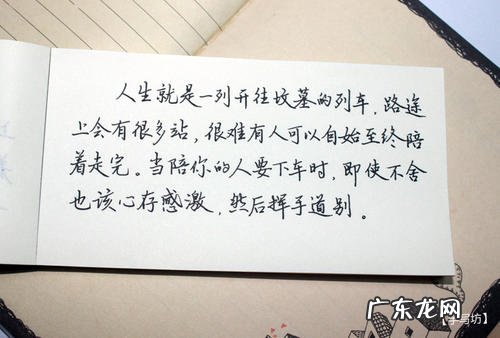 人生就是一列开往坟墓的列车，路途
上会有很多站，很难有人可以自始至终陪
着走完。当陪你的人要下车时，即使不舍
也该心存感激，然后挥手道别。
广东龙网
【手写坊】